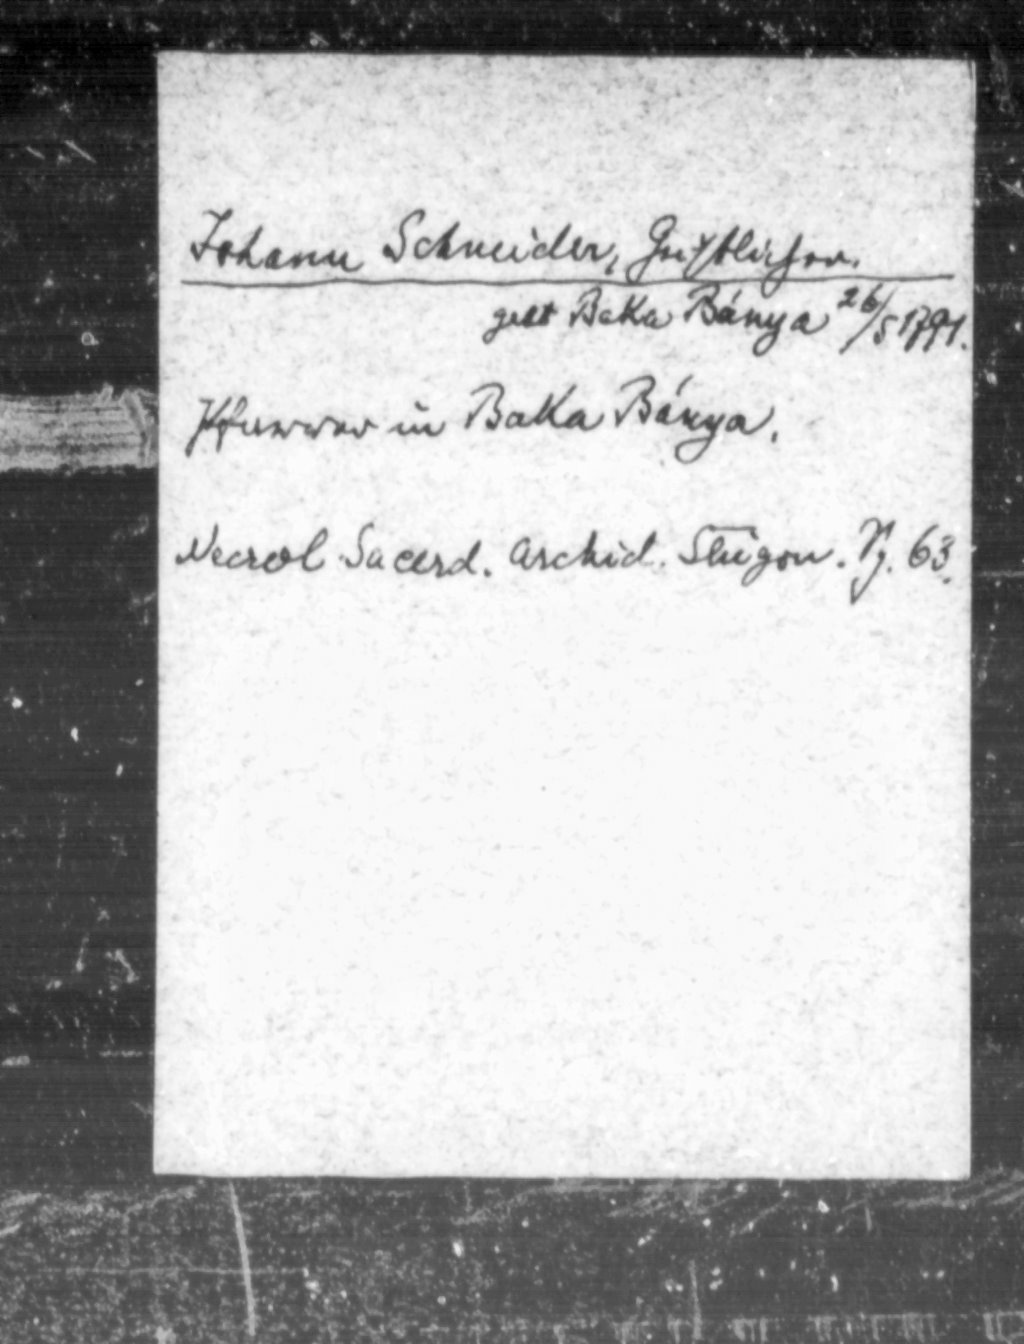 Johann Schneider, Geistlicher.
gest Baka Bánya 26/5 1791.
Pfarrer in Baka Bánya.
Necrol Sacerd. Archid. Strigon. Pg. 63.